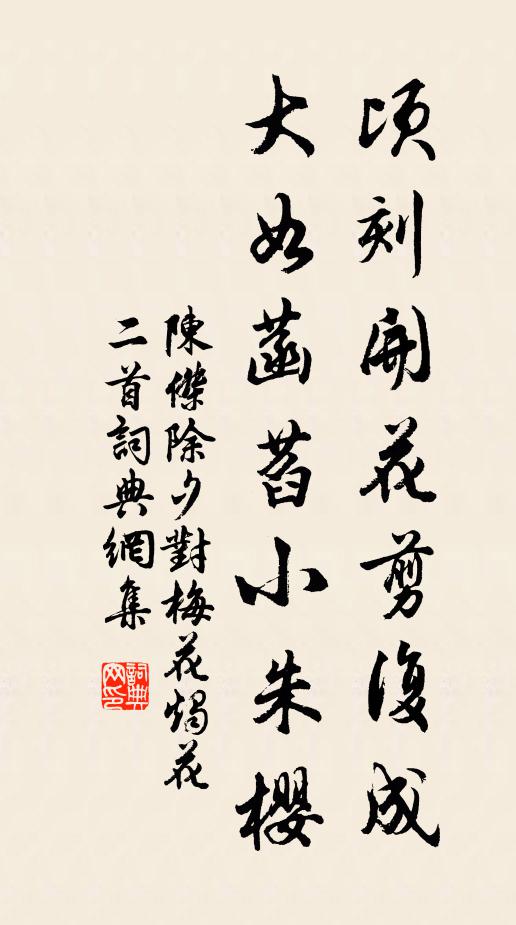 頃刻開花剪復成
大如菡萏小朱櫻
陳傑除夕對梅花燭花
二首詞典網集
詞典
网印